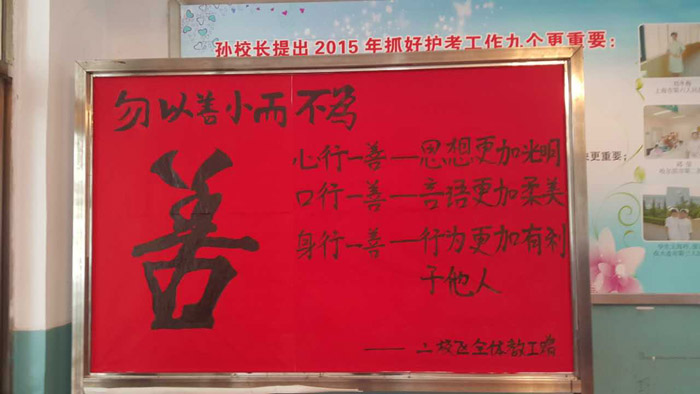 孙校长提出2015年抓好护考工作九个更重要：
勿以善小而不为
善
心行一善—思想更加光明
口行一善—言语更加柔美
身行一善—行为更加有利
于他人
——二校区全体教工宣
更重要；